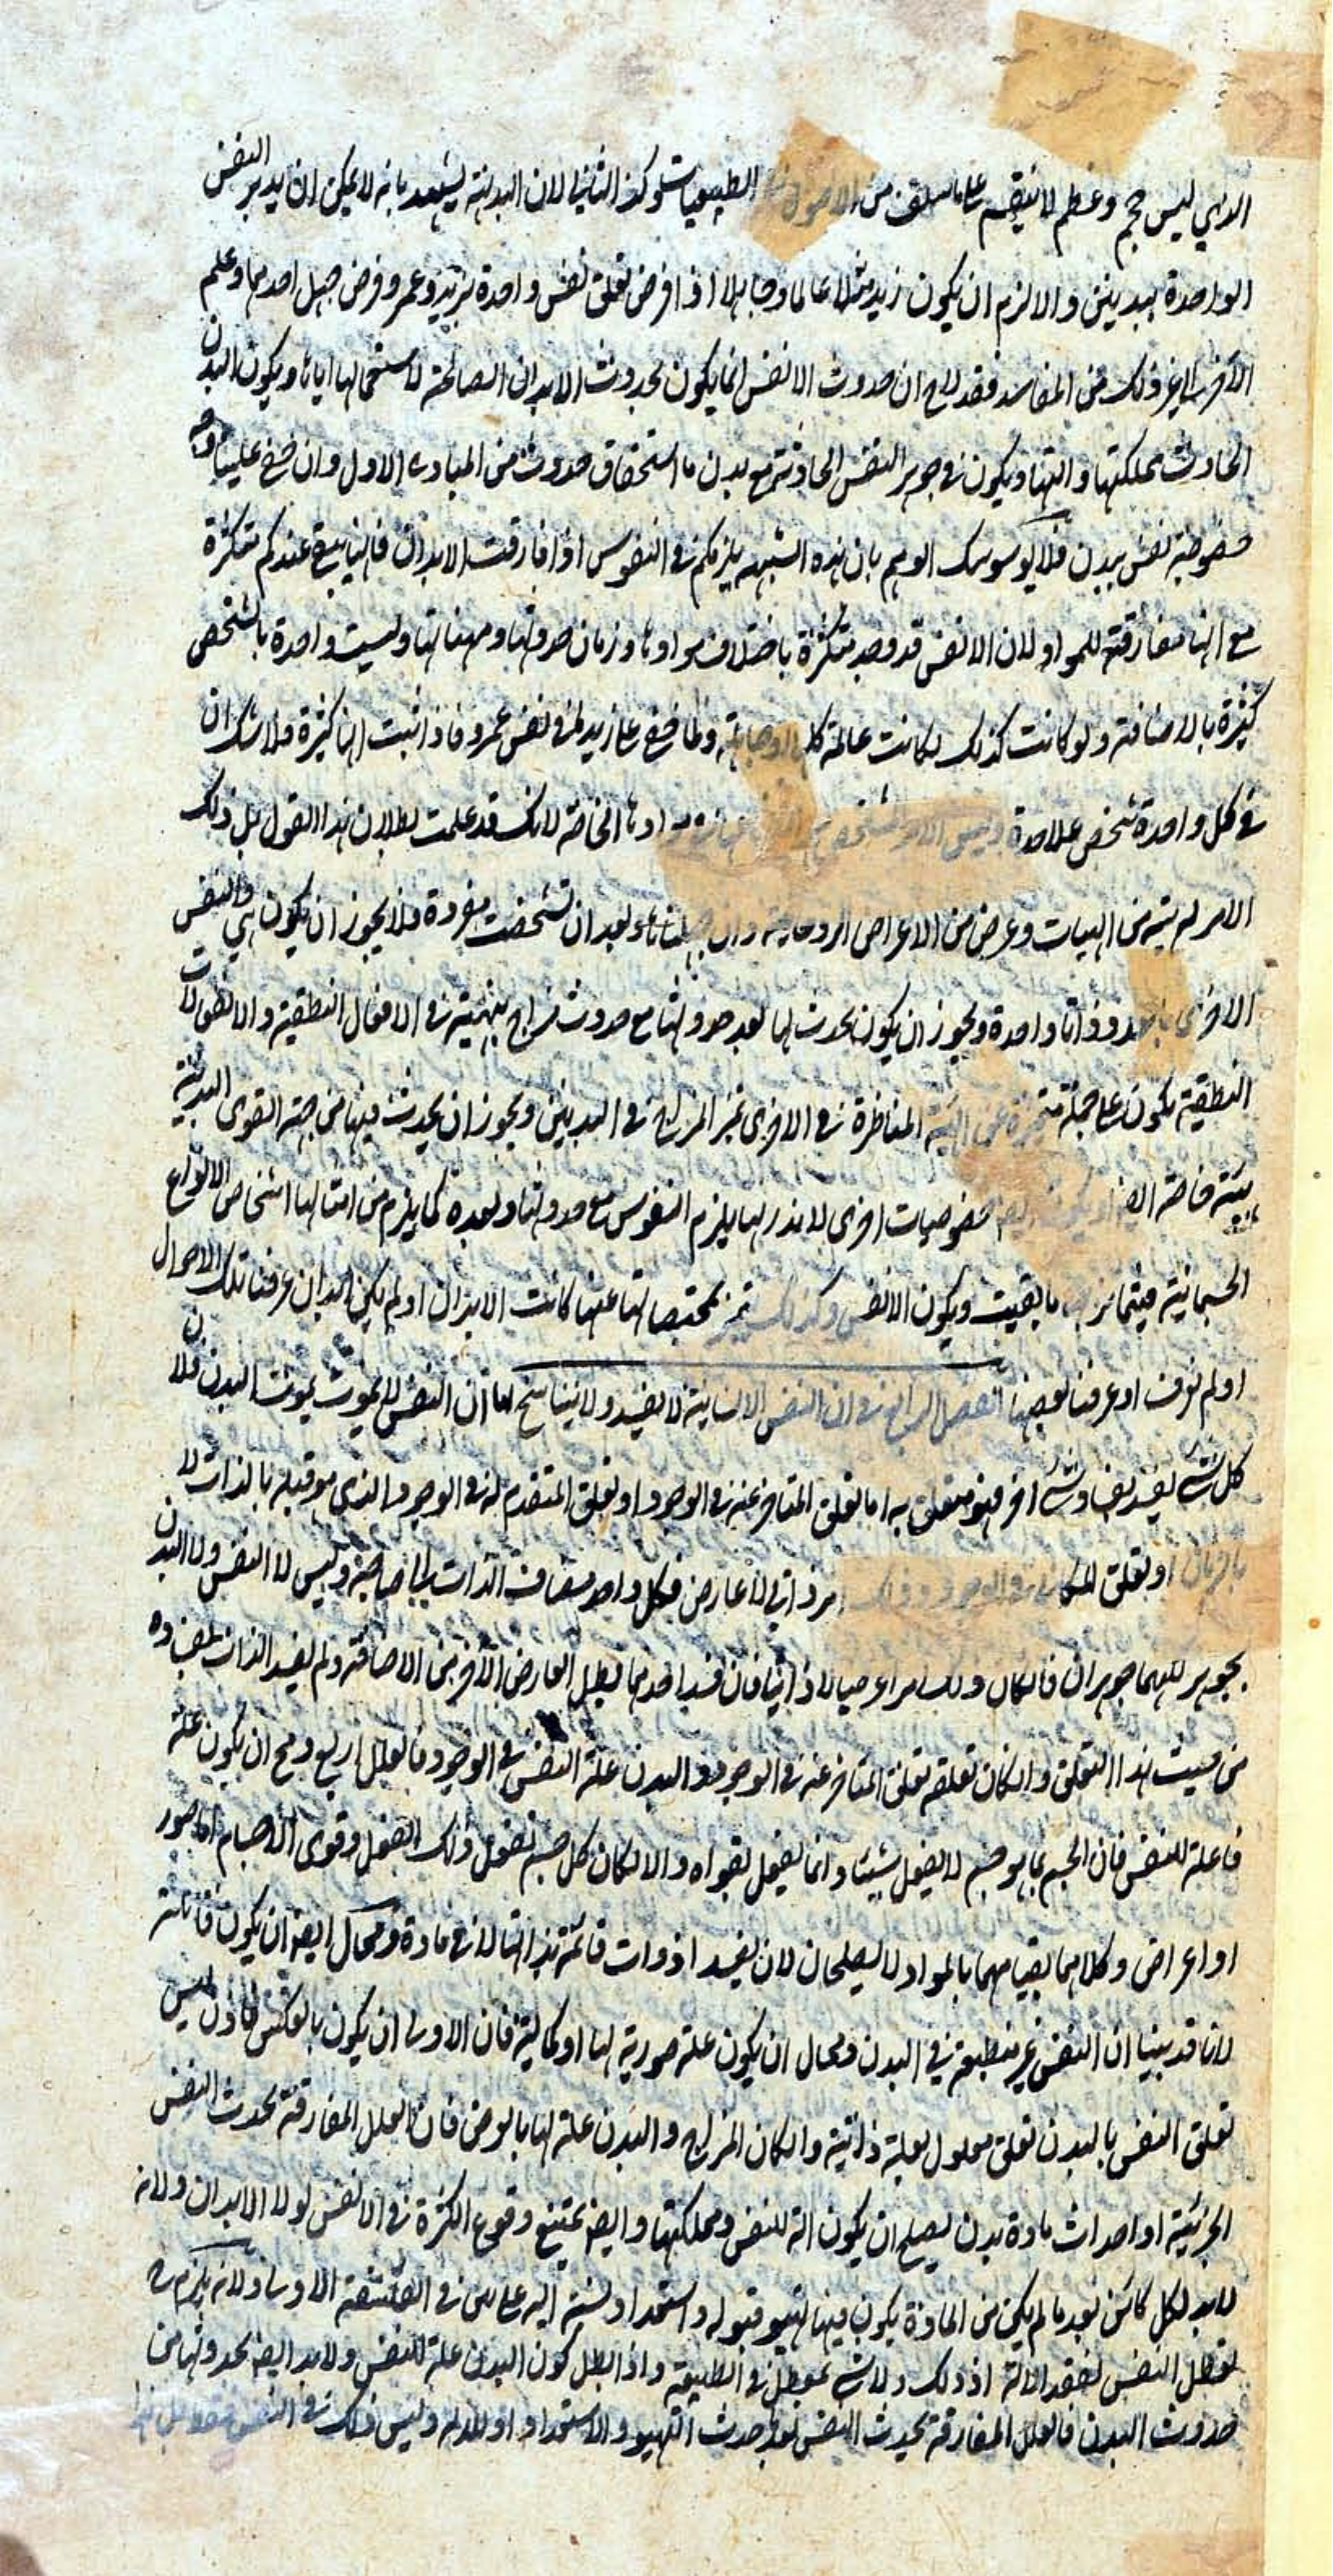 الذي ليس حجم وعظم لا ينقسم على ما سلف من الاصول الطبيعيات وكذا الثاني لان البديهة يشهد بانه لا يمكن ان يدبر النفس
الواحدة ببدنين والا لزم ان يكون زيد مثلا عالما وجاهلا اذا فرض تعلق نفس واحدة بزيد وعمرو وفرض جهل احدهما وعلم
الآخر الى غير ذلك من المفاسد فقد لاح ان حدوث الانفس انما يكون بحدوث الابدان الصالحة لاستعمالها اياها ويكون البدن
الحادث مملكتها والتها ويكون في جوهر النفس الحادثة مع بدن ما استحقاق حدوثه من المبادى الاول وان خفي علينا وجه
خصوصية نفس ببدن فلا يوسوسك الوهم بان هذه الشبهة يلزمكم في النفوس اذا فارقت الابدان فانها يبقى عندكم متكثرة
مع انها مفارقة للمواد لان الانفس قد وجد متكثرة باختلاف موادها وزمان حدوثها وهيئاتها وليست واحدة بالشخص
كثيرة بالاضافة ولو كانت كذلك لكانت عالمة كل او جاهلة ولما خفي على زيد ما في نفس عمرو فاذا ثبت انها كثيرة فلا شك ان
في كل واحدة شخص علاحدة وليس الامر المشخص موادها الخاصة لانك قد علمت بطلان هذا القول بل ذلك
الامر لهيئة من الهيات وعرض من الاعراض الروحانية وان جهلناها وبعد ان تشخصت مفردة فلا يجوز ان يكون هي والنفس
الاخرى بالعدد ذاتا واحدة ويجوز ان يكون يحدث لها بعد حدوثها مع حدوث مزاج هيئة في الافعال النطقية والانفعالات
النطقية يكون على جملة متميزة عن الهيئة المناظرة في الاخرى تميز المزاج في البدنين ويجوز ان يحدث فيها من جهة القوى البدنية
هيئة خاصة ايضا او يكون خصوصيات اخرى لا ندريها يلزم النفوس مع حدوثها وبعده كما يلزم من امثالها اشخاص الانواع
الجسمانية فيتمايز بها ما بقيت ويكون الانفس وكذلك تميز بمختصاتها عنها كانت الابدان او لم يكن ابدان عرفنا تلك الاحوال
او لم نعرف او عرفنا بعضها الفصل الرابع في ان النفس الانسانية لا يفسد ولا يتناسخ اما ان النفس لا يموت بموت البدن فلان
كل شئ يفسد بفساد شئ اخر فهو متعلق به اما تعلق المتأخر عنه في الوجود او تعلق المتقدم له في الوجود الذي هو قبله بالذات لا
بالزمان او تعلق المكافى في الوجود وذلك امر ذاتي لا عارض فكل واحد مضاف الذات الى صاحبه وليس لا النفس ولا البدن
بجوهر لكنهما جوهران فان كان ذلك امرا عرضيا لا ذاتيا فان فسد احدهما بطل العارض الآخر من الاضافة ولم يفسد الذات بفساده
من حيث هذا التعلق وان كان تعلقه تعلق المتاخر عنه في الوجود والبدن علة النفس في الوجود فالعلل اربع ومح ان يكون علة
فاعلة للنفس فان الجسم بما هو جسم لا يفعل شيئا وانما يفعل بقواه والا لكان كل جسم يفعل ذلك الفعل وقوى الاجسام اما صور
او اعراض وكلاهما بقيامهما بالمواد لا يصلحان لان يفيدا ذوات قائمة بذاتها لا في مادة ومحال ايضا ان يكون قابلة
لانا قد بينا ان النفس غير منطبعة في البدن ومحال ان يكون علة صورية لها او كمالية فان الاولى ان يكون بالعكس فاذن ليس
تعلق النفس بالبدن تعلق معلول بعلة ذاتية وان كان المزاج والبدن علة لها بالعرض فان العلل المفارقة تحدث النفس
الجزئية او احداث مادة بدن يصلح ان يكون الة للنفس ومملكتها وايضا يمتنع وقوع الكثرة في الانفس لولا الابدان ولانه
لابد لكل كائن بعد ما لم يكن من المادة يكون فيها تهيؤ قبوله واستعداد نسبته اليه على ما في الفلسفة الاولى ولانه يلزم
تعطل النفس لفقد الالة اذ ذلك ولا شئ معطل في الطبيعة واذا بطل كون البدن علة للنفس ولابد ايضا لحدوثها من
حدوث البدن فالعلل المفارقة يحدث النفس بعد حدث التهيؤ والاستعداد او للالة وليس ذلك في النفس